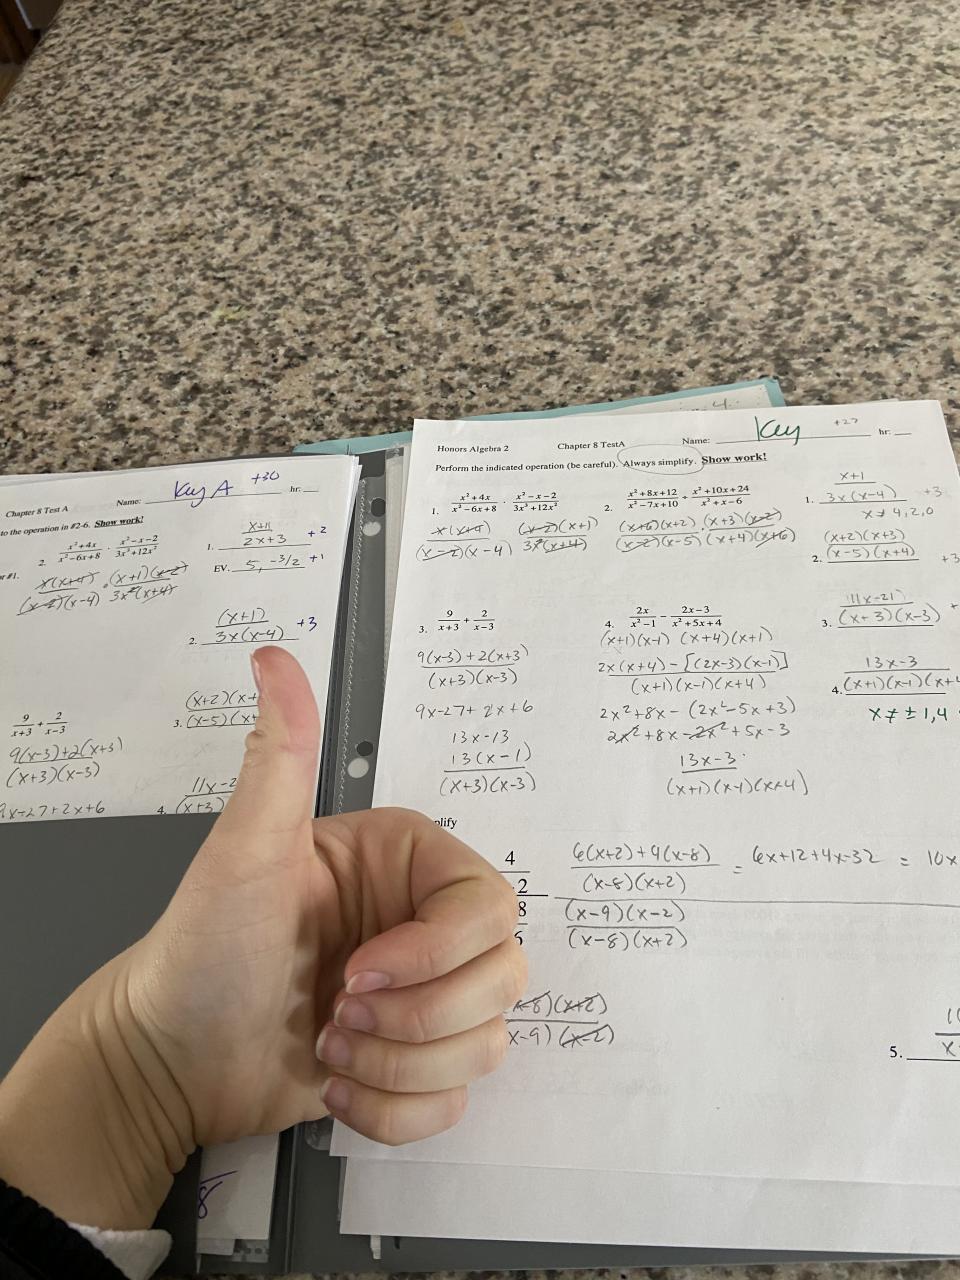 4
Key A +30
Chapter 8 Test A Name: hr:
to the operation in #2-6. Show work!
r #1.
2. x²+4x / x²−6x+8 · x²−x−2 / 3x³+12x²
x(x+4) / (x−2)(x−4) · (x+1)(x−2) / 3x²(x+4)
1. x+11 / 2x+3 +2
EV. 5, −3/2 +1
2. (x+1) / 3x(x−4) +3
9/x+3 + 2/x−3
9(x−3)+2(x+3) / (x+3)(x−3)
9x−27+2x+6
3. (x+2)(x+ / (x−5)(x+
4. 11x−2 / (x+3)
8
Key +27
Honors Algebra 2 Chapter 8 TestA Name: hr:
Perform the indicated operation (be careful). Always simplify. Show work!
1. x²+4x / x²−6x+8 · x²−x−2 / 3x³+12x²
x(x+4) / (x−2)(x−4) (x−2)(x+1) / 3x²(x+4)
2. x²+8x+12 / x²−7x+10 ÷ x²+10x+24 / x²+x−6
(x+6)(x+2) / (x−2)(x−5) · (x+3)(x−2) / (x+4)(x+6)
1. x+1 / 3x(x−4) +3
x≠4,2,0
2. (x+2)(x+3) / (x−5)(x+4) +3
3. 9/x+3 + 2/x−3
9(x−3)+2(x+3) / (x+3)(x−3)
9x−27+2x+6
13x−13
13(x−1) / (x+3)(x−3)
4. 2x / x²−1 − 2x−3 / x²+5x+4
(x+1)(x−1) (x+4)(x+1)
2x(x+4)−[(2x−3)(x−1)] / (x+1)(x−1)(x+4)
2x²+8x−(2x²−5x+3)
2x²+8x−2x²+5x−3
13x−3 / (x+1)(x−1)(x+4)
3. 11x−21 / (x+3)(x−3) +
4. 13x−3 / (x+1)(x−1)(x+4
x≠±1,4
plify
4
2
8
6(x+2)+4(x−8) / (x−8)(x+2) = 6x+12+4x−32 = 10x
(x−9)(x−2) / (x−8)(x+2)
x−8)(x+2) / x−9)(x−2)
5. 10 / x−